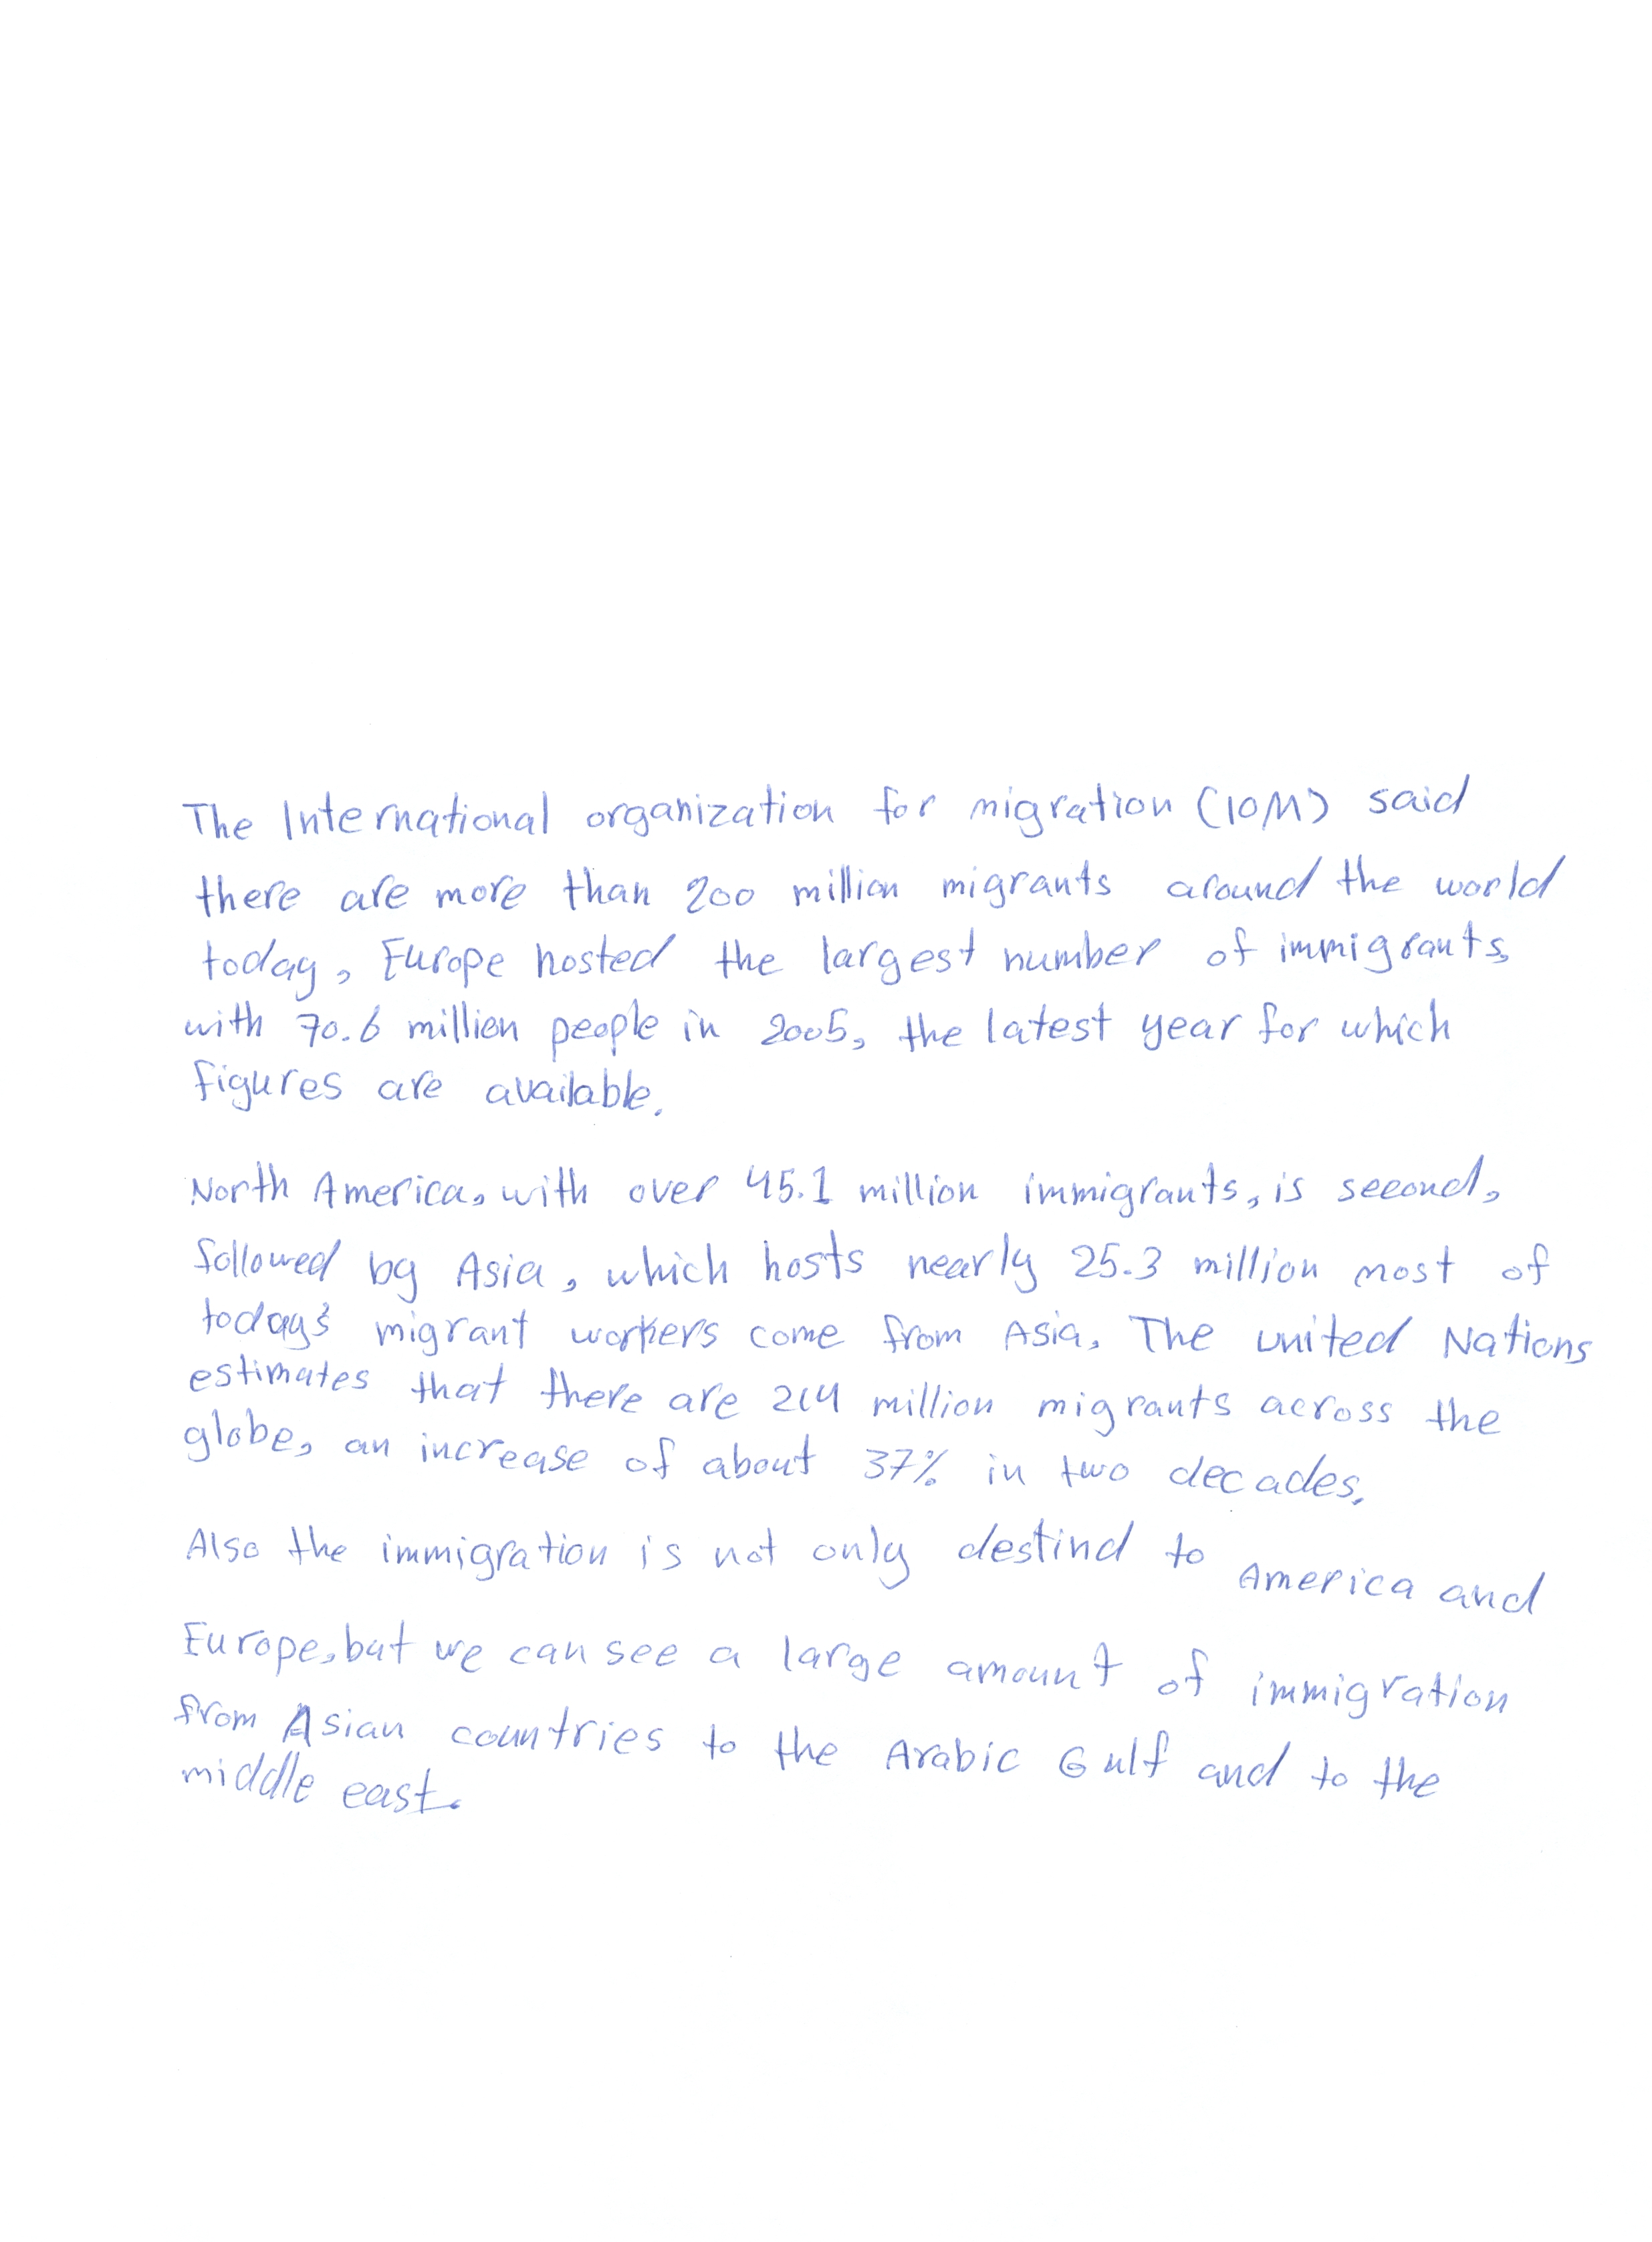 The International organization for migration (IOM) said
there are more than 200 million migrants around the world
today, Europe hosted the largest number of immigrants,
with 70.6 million people in 2005, the latest year for which
figures are available.
North America, with over 45.1 million immigrants, is second,
followed by Asia, which hosts nearly 25.3 million most of
today's migrant workers come from Asia. The united Nations
estimates that there are 214 million migrants across the
globe, an increase of about 37% in two decades.
Also the immigration is not only destind to America and
Europe, but we can see a large amount of immigration
from Asian countries to the Arabic Gulf and to the
middle east.